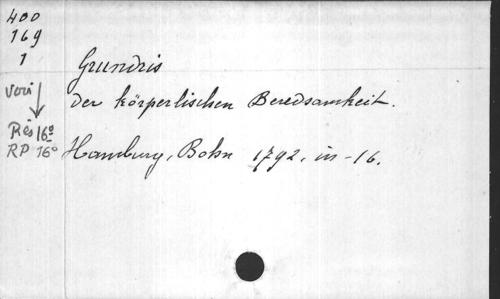 400
169
1
Grundris
der körperlischen Beredsamkeit.
voir
Rés 16°
RP 16°
Hamburg, Bohn 1792, in-16.